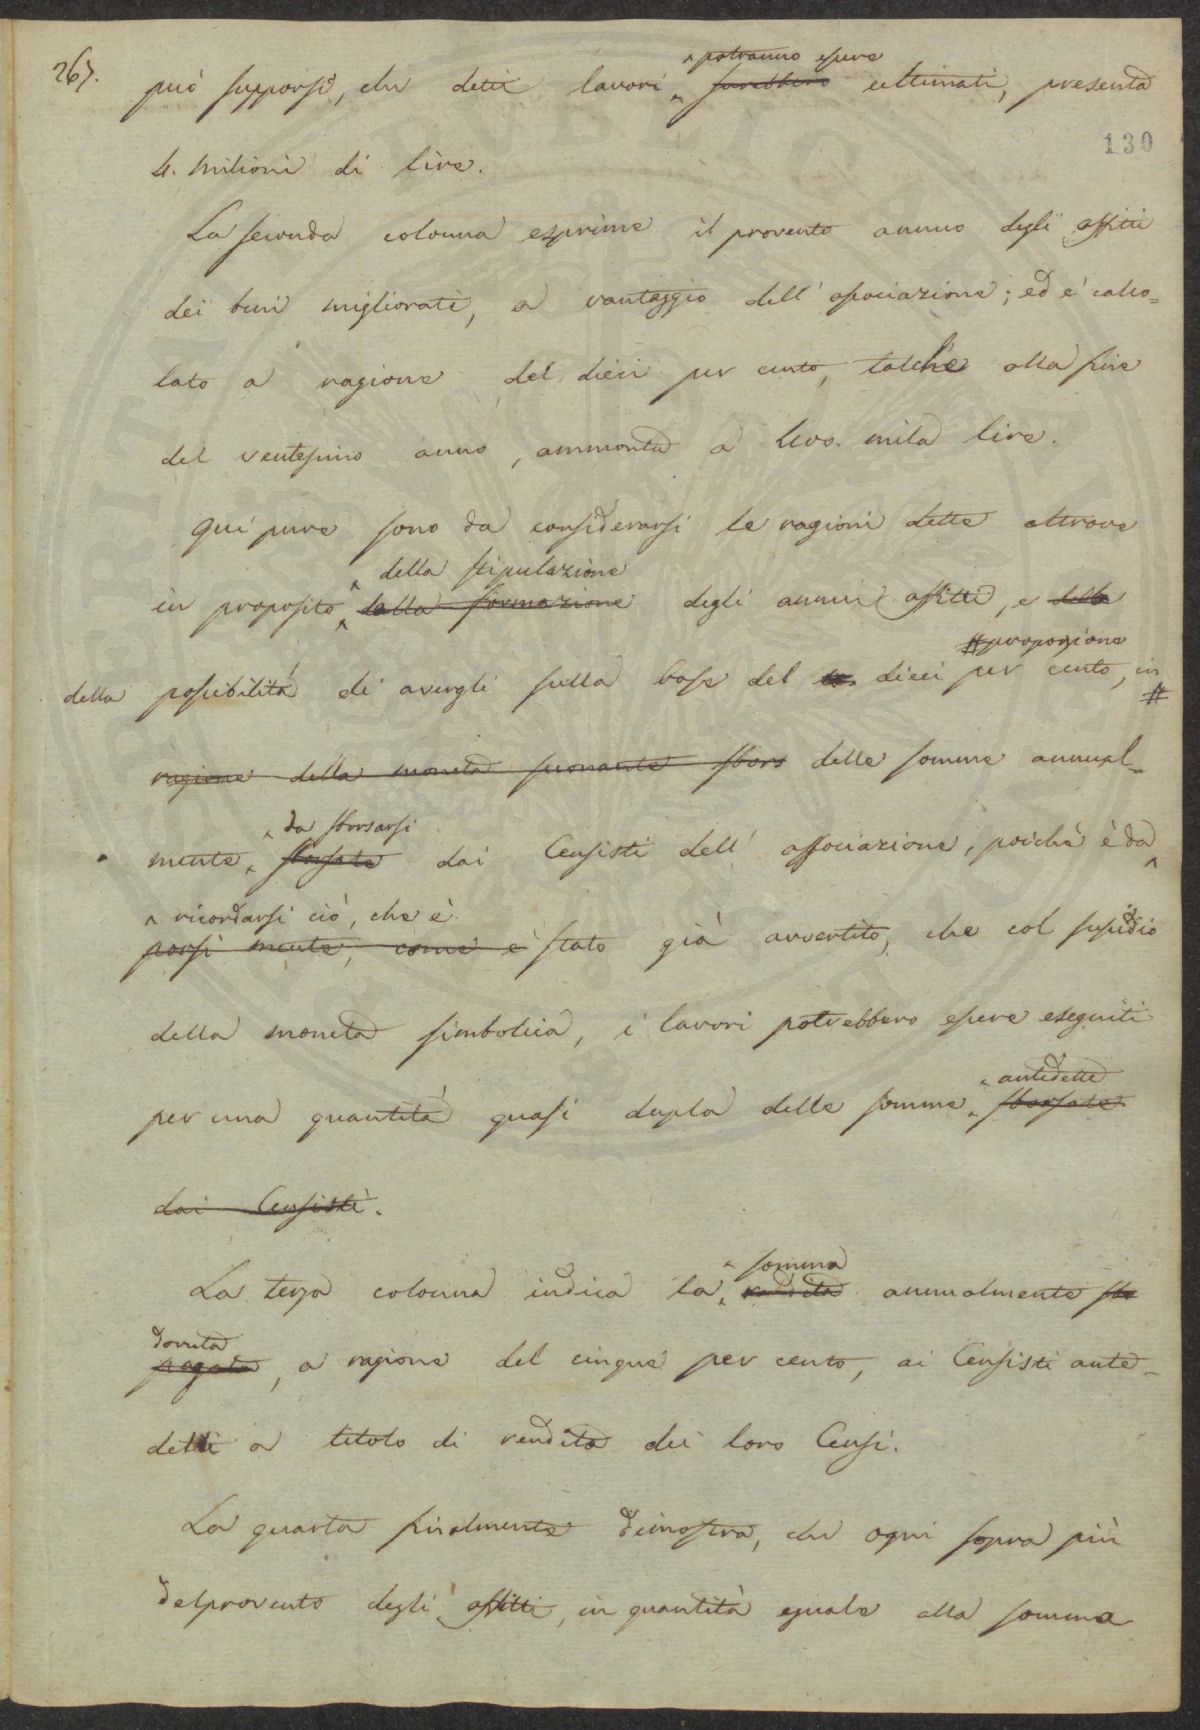 267.
^ potranno essere
può supporsi, che detti lavori ^ sarebbero ultimati, presenta
130
4. milioni di lire.
La seconda colonna esprime il provento annuo degli affitti
dei beni migliorati, a vantaggio dell' associazione; ed e' calco=
lato a ragione del dieci per cento, talchè alla fine
del ventesimo anno, ammonta a 400. mila lire.
Quì pure sono da considerarsi le ragioni dette altrove
^ della stipulazione
in proposito ^ della formazione degli annui affitti, e della
# proporzione
della possibilità di avergli sulla base del dieci per cento, in #
ragione della moneta suonante sbors delle somme annual=
^ da sborsarsi
mente ^ sborsate dai Censisti dell' associazione, poichè è da ^
^ ricordarsi ciò, che è
porsi mente, come è stato già avvertito, che col sussidio
della moneta simbolica, i lavori potrebbero essere eseguiti
^ antedette
per una quantità quasi dupla delle somme ^ sborsate
dai Censisti.
^ somma
La terza colonna indica la ^ rendita annualmente sbo
dovuta
pagata, a ragione del cinque per cento, ai Censisti ante=
detti a titolo di rendita dei loro Censi.
La quarta finalmente dimostra, che ogni sopra più
del provento degli affitti, in quantità eguale alla somma